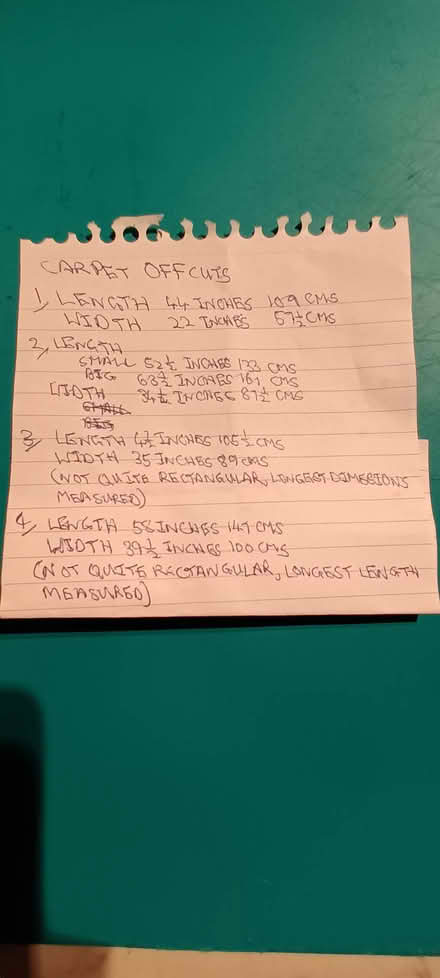 CARPET OFFCUTS
1, LENGTH 44 INCHES 109 CMS
WIDTH 22 INCHES 57½ CMS
2, LENGTH
SMALL 52½ INCHES 133 CMS
BIG 63½ INCHES 161 CMS
WIDTH 34½ INCHES 87½ CMS
SMALL
BIG
3, LENGTH 41½ INCHES 105½ CMS
WIDTH 35 INCHES 89 CMS
(NOT QUITE RECTANGULAR, LONGEST DIMESIONS
MEASURED)
4, LENGTH 58 INCHES 147 CMS
WIDTH 39½ INCHES 100 CMS
(NOT QUITE RECTANGULAR, LONGEST LENGTH
MEASURED)